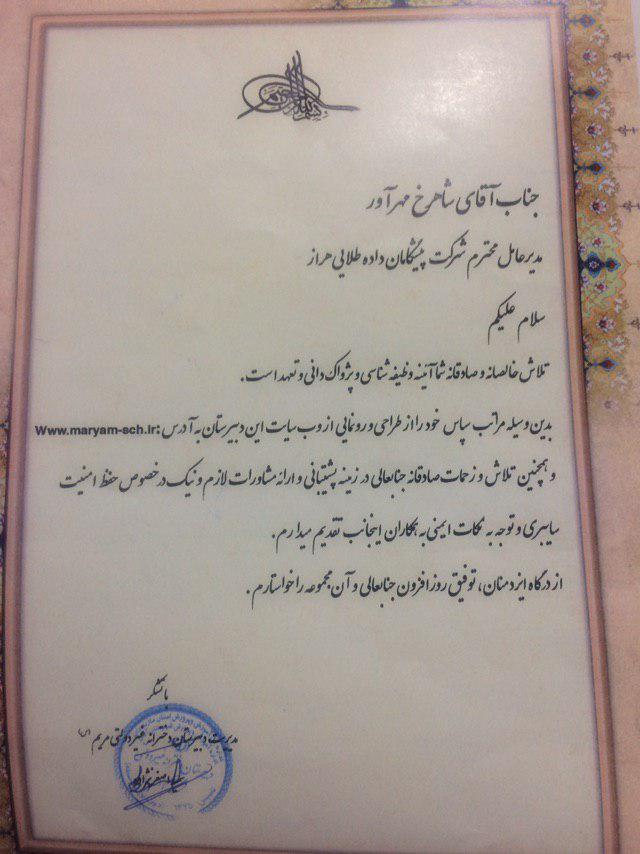 جناب آقای شاهرخ مهرآور
مدیرعامل محترم شرکت پیشگامان داده طلایی هراز
سلام علیکم
تلاش خالصانه و صادقانه شما آئینه وظیفه شناسی و پژواک دانی و تعهد است.
بدین وسیله مراتب سپاس خود را از طراحی و رونمایی از وب سایت این دبیرستان به آدرس: Www.maryam-sch.ir
و همچنین تلاش و زحمات صادقانه جنابعالی در زمینه پشتیبانی و ارائه مشاورات لازم و نیک در خصوص حفظ امنیت
سایبری و توجه به نکات ایمنی به همکاران اینجانب تقدیم میدارم.
از درگاه ایزد منان، توفیق روزافزون جنابعالی و آن مجموعه را خواستارم.
باتشکر
مدیریت دبیرستان دخترانه غیردولتی مریم (س)